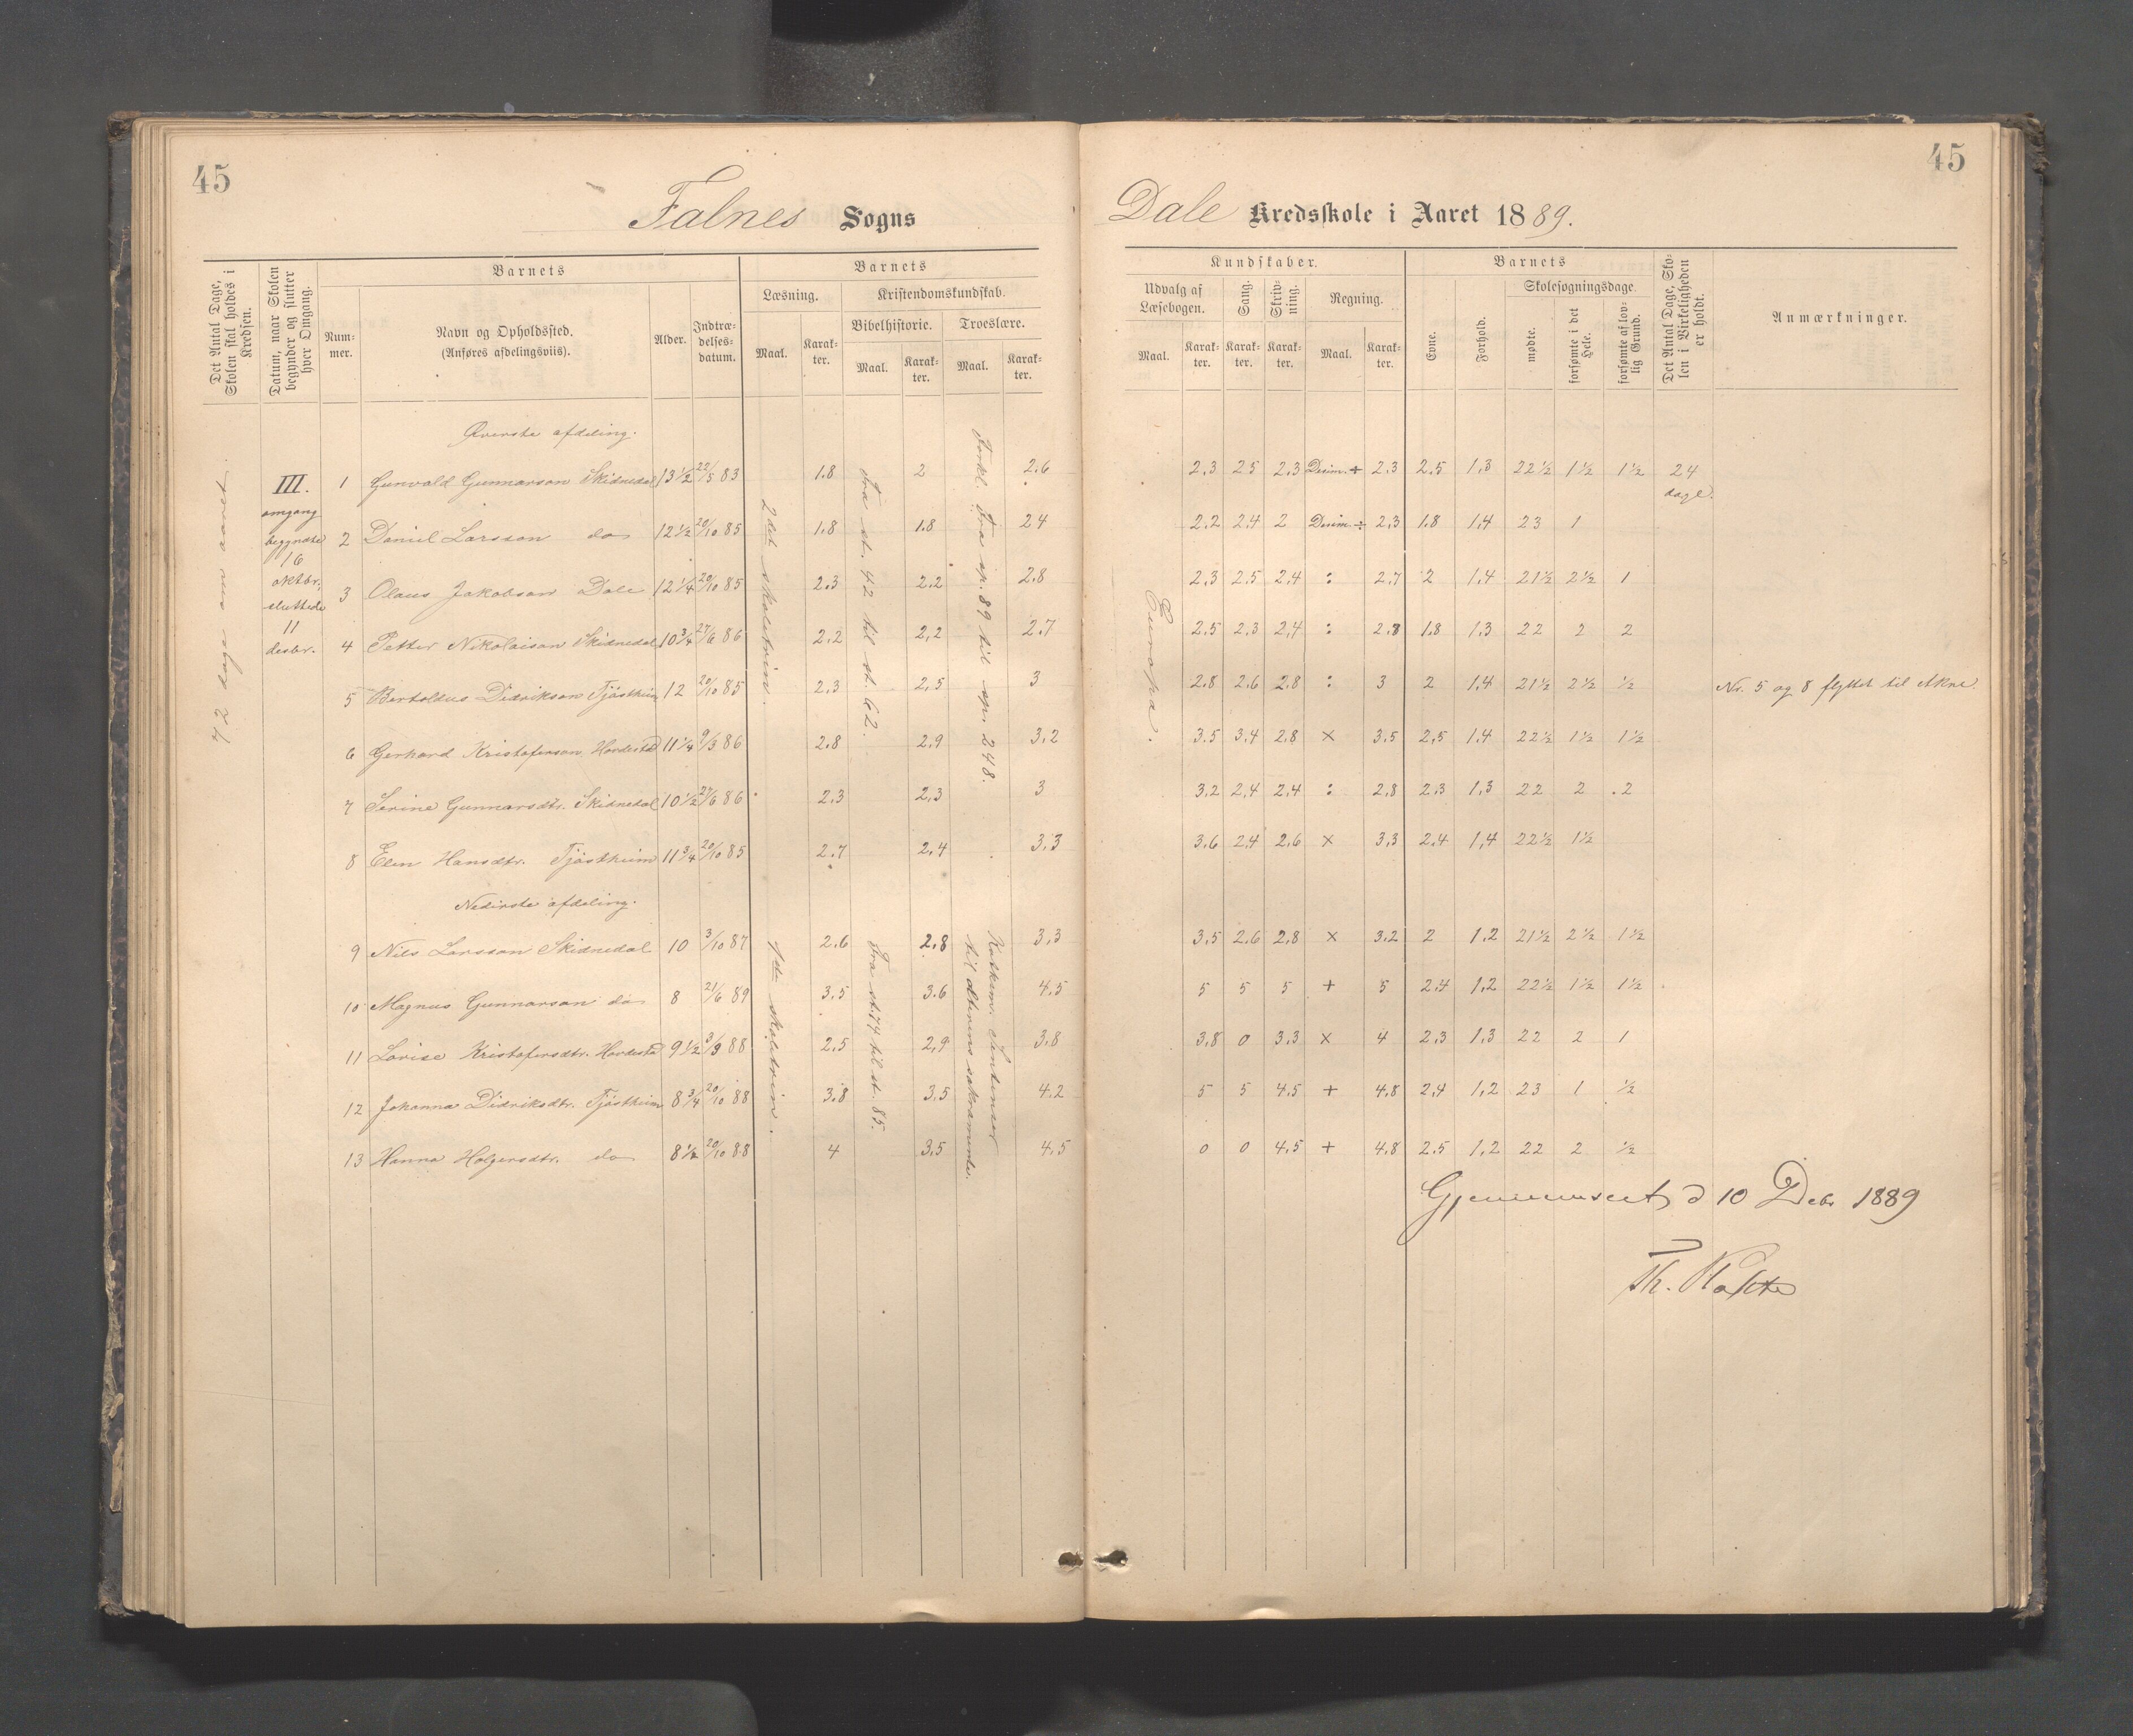 45
45
Falnes Sogns
Dale Kredsskole i Aaret 1889.
Det Antal Dage, Skolen skal holdes i Kredsen.
Datum, naar Skolen begynder og slutter hver Omgang.
Barnets
Num-
mer.
Navn og Opholdssted.
(Anføres afdelingsviis).
Alder.
Indtræ-
delses-
datum.
Barnets
Læsning.
Maal.
Karak-
ter.
Kristendomskundskab.
Bibelhistorie.
Maal.
Karak-
ter.
Troeslære.
Maal.
Karak-
ter.
Kundskaber.
Udvalg af
Læsebogen.
Maal.
Karak-
ter.
Sang.
Karak-
ter.
Skriv-
ning.
Karak-
ter.
Regning.
Maal.
Karak-
ter.
Barnets
Evne.
Forhold.
Skolesøgningsdage.
mødte.
forsømte i det Hele.
forsømte af lov-
lig Grund.
Det Antal Dage, Sko-
len i Virkeligheden
er holdt.
Anmærkninger.
72 dage om aaret.
III.
omgang
begyndte
16
oktbr.,
sluttede
11
desbr.
Øverste afdeling.
2det skoletrin.
Fra st. 42 til st. 62.
Forkl. Fra sp. 89 til sp. 248.
Europa.
1 Gunvald Gunnarson Skidnedal 13 1/2 22/5 83 1.8 2 2.6 2,3 25 2,3 Desim. + 2,3 2,5 1,3 22 1/2 1 1/2 1 1/2 24 dage.
2 Daniel Larsson do 12 1/2 20/10 85 1.8 1.8 24 2,2 2,4 2 Desim. ÷ 2,3 1.8 1,4 23 1
3 Olaus Jakobson Dale 12 1/4 20/10 85 2.3 2.2 2.8 2,3 2.5 2,4 : 2,7 2 1,4 21 1/2 2 1/2 1
4 Petter Nikolaison Skidnedal 10 3/4 27/6 86 2.2 2,2 2.7 2,5 2,3 2,4 : 2,8 1.8 1.3 22 2 2
5 Bertoldus Didrikson Tjøstheim 12 20/10 85 2.3 2,5 3 2.8 2.6 2.8 : 3 2 1,4 21 1/2 2 1/2 1/2 Nr. 5 og 8 flyttet til Akne.
6 Gerhard Kristoferson Hordestad 11 1/4 9/3 86 2.8 2,9 3,2 3.5 3,4 2,8 × 3.5 2,5 1.4 22 1/2 1 1/2 1 1/2
7 Serine Gunnarsdtr. Skidnedal 10 1/2 27/6 86 2.3 2,3 3 3,2 2,4 2,4 : 2,8 2.3 1,3 22 2 2
8 Elen Hansdtr. Tjøstheim 11 3/4 20/10 85 2.7 2,4 3,3 3.6 24 2,6 × 3,3 2,4 1,4 22 1/2 1 1/2
Nederste afdeling.
1ste skoletrin.
Fra st. 74 til st. 85.
til alterens sakramente.
9 Nils Larsson Skidnedal 10 3/10 87 2.6 2.8 3,3 3,5 2.6 2,8 × 3.2 2 1.2 21 1/2 2 1/2 1 1/2
10 Magnus Gunnarson do 8 21/6 89 3.5 3.6 4,5 5 5 5 + 5 2,4 1,2 22 1/2 1 1/2 1 1/2
11 Lovise Kristofersdtr. Hordestad 9 1/2 3/9 88 2.5 2,9 3.8 3,8 0 3.3 × 4 2,3 1.3 22 2 1
12 Johanna Didriksdtr. Tjøstheim 8 3/4 20/10 88 3.8 3.5 4.2 5 5 4.5 + 4,8 2,4 1,2 23 1 1/2
13 Hanna Holgersdtr. do 8 1/2 20/10 88 4 3,5 4,5 0 0 4.5 + 4,8 2.5 1,2 22 2 1/2
Gjennemseet d 10 Debr 1889